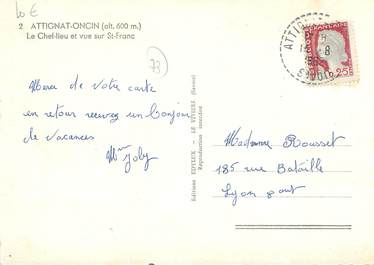 10 €
2 ATTIGNAT-ONCIN (alt. 600 m.)
Le Chef-lieu et vue sur St-Franc
73
Merci de votre carte
en retour recevez un bonjour
de vacances
Mme Joly
Editions EDYLUX - LE VIVIERS (Savoie)
Reproduction interdite
ATTIGNAT
SAVOIE
25F
Madame Rousset
185 rue Bataille
Lyon